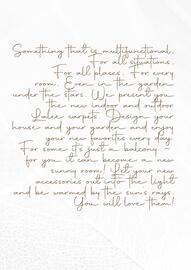 Something that is multifunctional.
For all situations.
For all places. For every
room. Even in the garden
under the stars. We present you
the new indoor and outdoor
Lalee carpets. Design your
house and your garden and enjoy
your new favorites every day.
For some it's just a balcony -
for you it can become a new
sunny room! Let your new
accessories out into the light
and be warmed by the sun's rays.
You will love them!